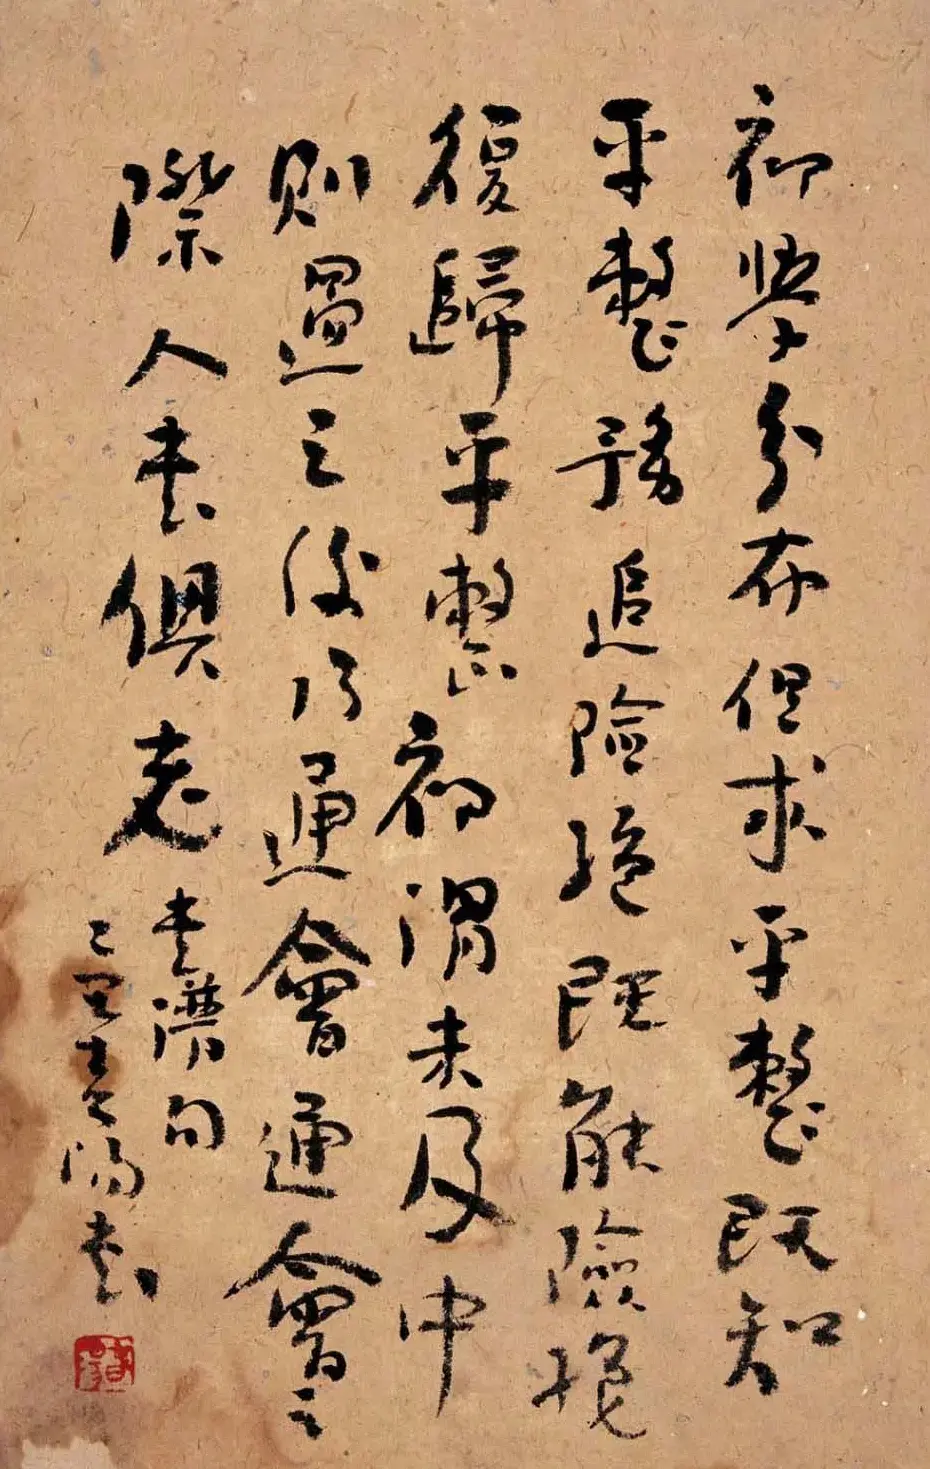 初學分布但求平整既知
平整務追險絕既能險絕
復歸平整初謂未及中
則過之後乃通會通會之
際人書俱老
書譜句
書